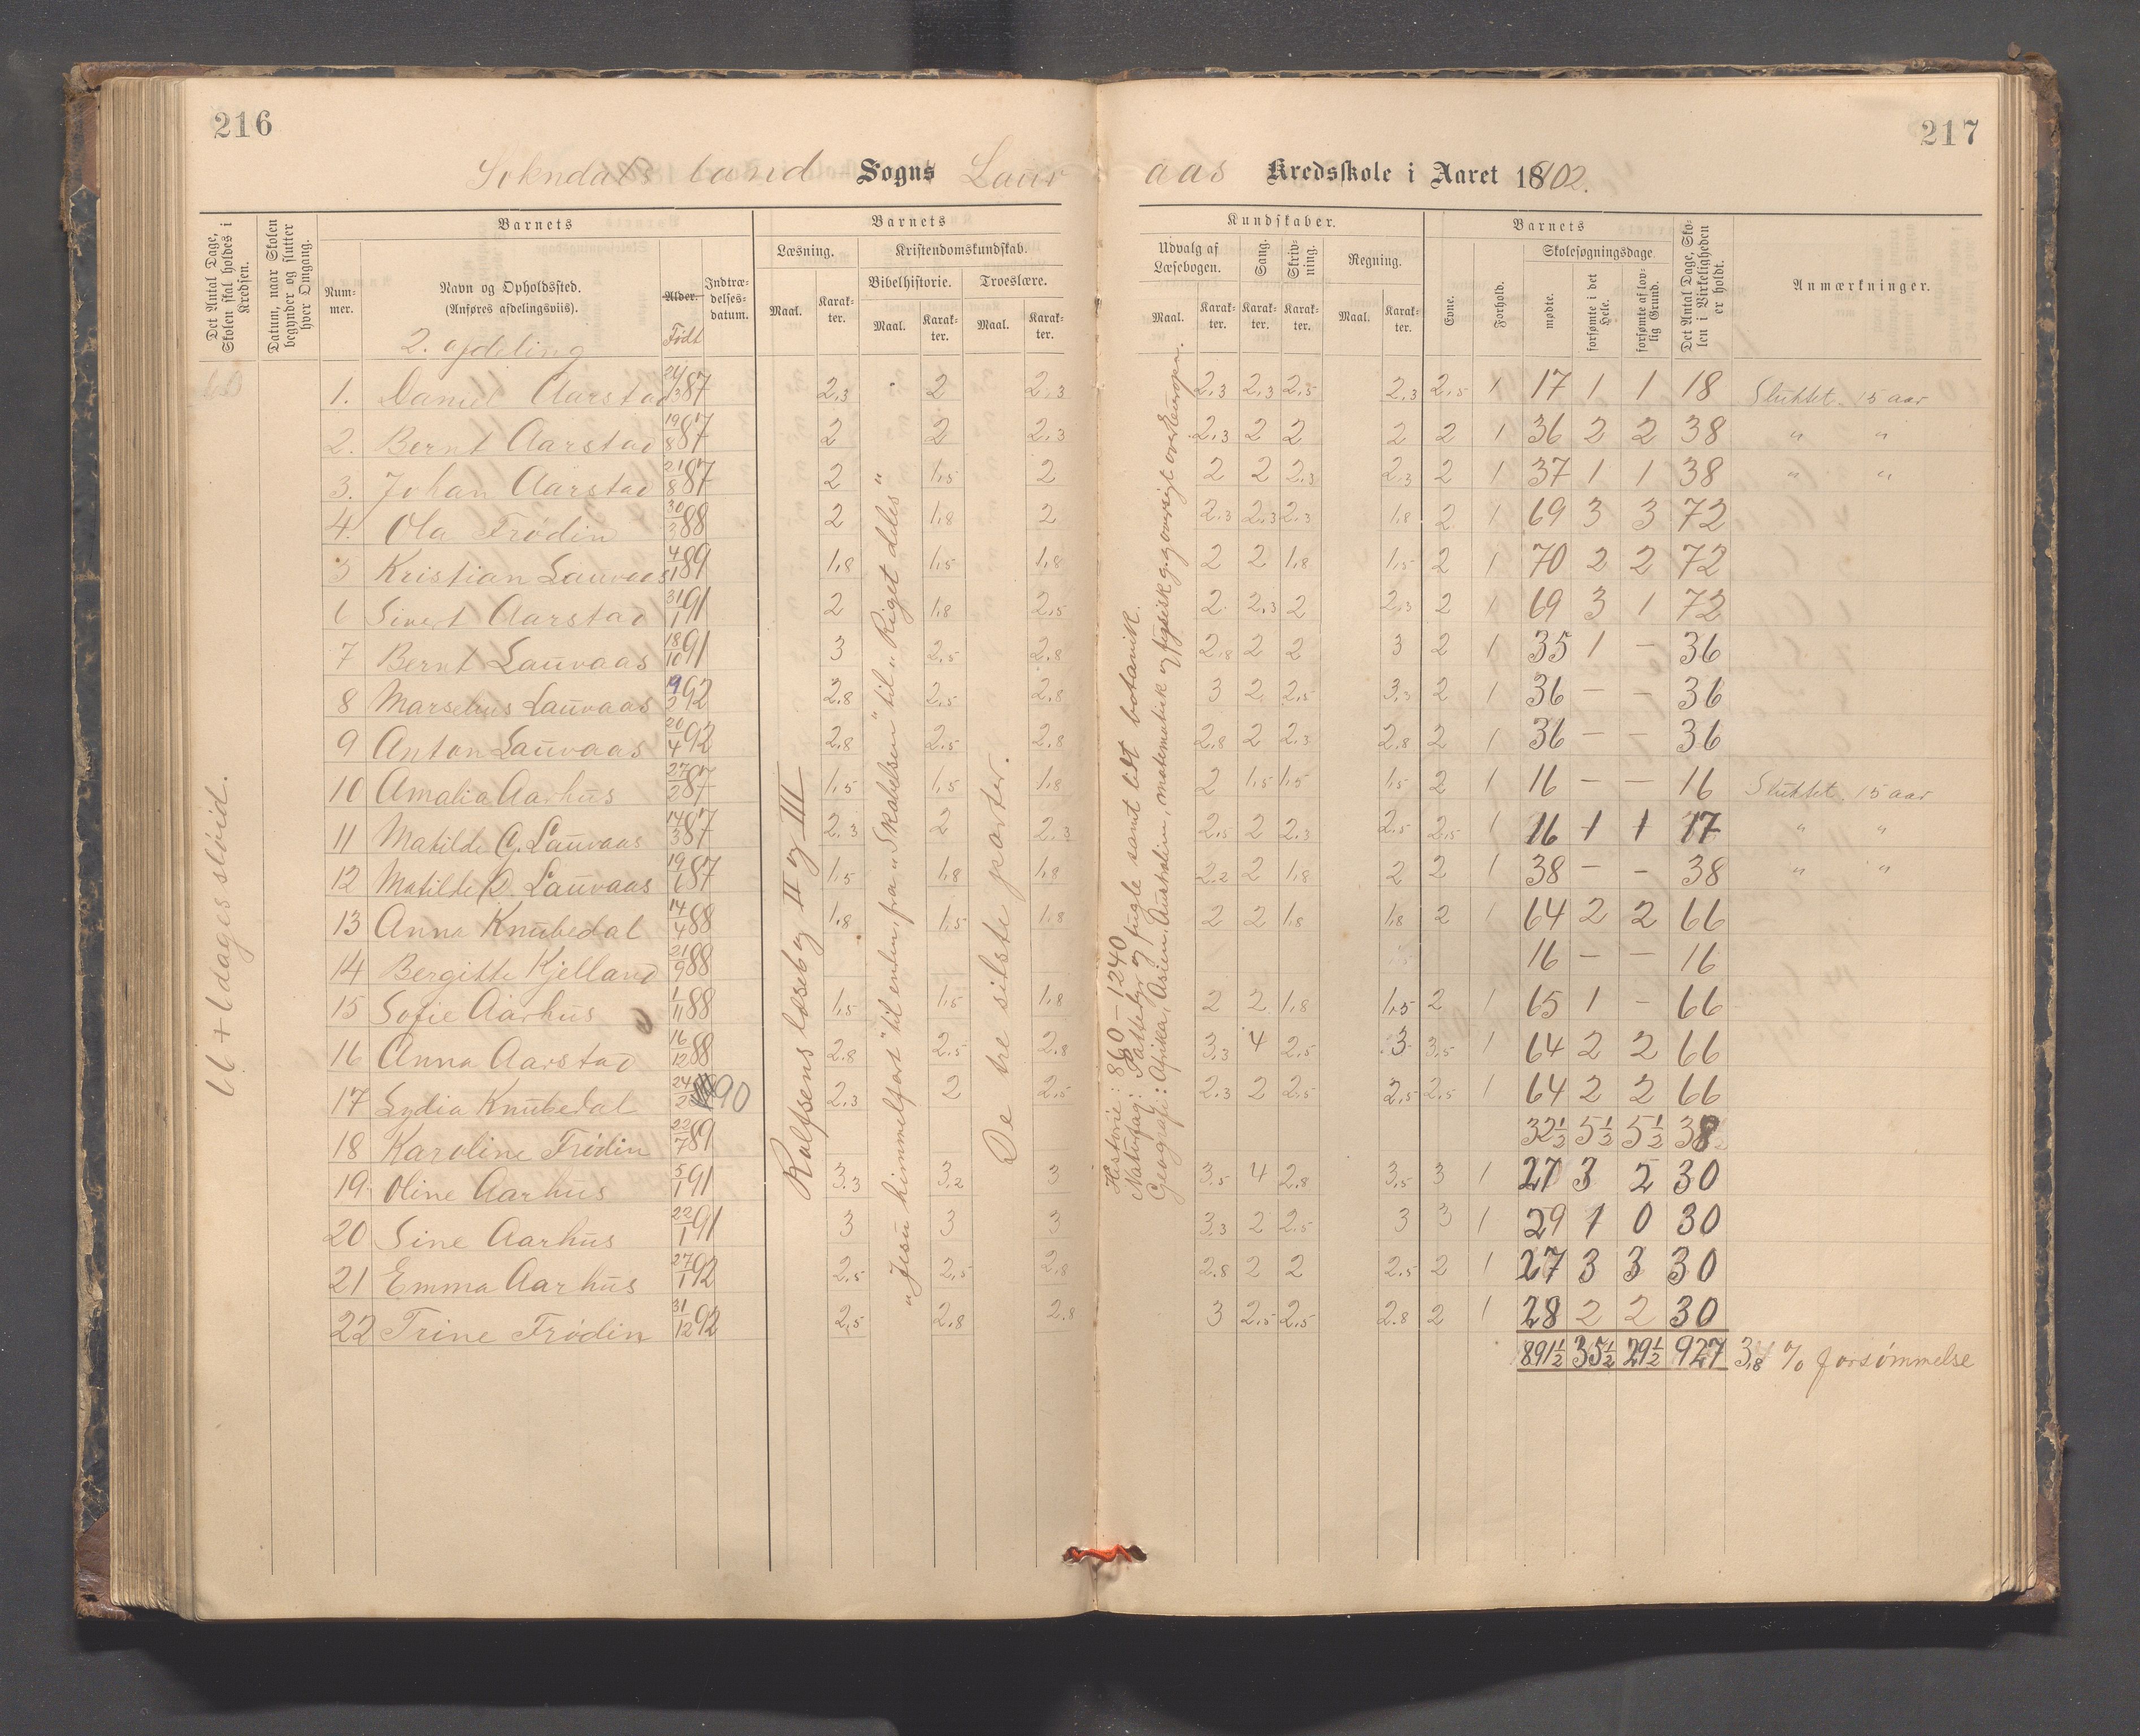 216
217
Sokndals land Sogns Lauv
aas Kredsskole i Aaret 1902.
Det Antal Dage, Skolen skal holdes i Kredsen.
Datum, naar Skolen begynder og slutter hver Omgang.
Barnets
Barnets
Kundskaber.
Barnets
Nummer.
Navn og Opholdssted.
(Anføres afdelingsviis).
Alder. Født
Indtrædelsesdatum.
Læsning.
Kristendomskundskab.
Bibelhistorie.
Troeslære.
Maal.
Karakter.
Maal.
Karakter.
Maal.
Karakter.
Udvalg af Læsebogen.
Sang.
Skrivning.
Regning.
Maal.
Karakter.
Karakter.
Karakter.
Maal.
Karakter.
Evne.
Forhold.
Skolesøgningsdage
mødte.
forsømte i det Hele.
forsømte af lovlig Grund.
Det Antal Dage, Skolen i Virkeligheden er holdt.
Anmærkninger.
2. afdeling
66 + 6 dages sløid.
Rolfsens læsebog II og III
"Jesu himmelfart" til enden, fra "Skabelsen" til "Riget deles"
De tre sidste parter.
Historie: 860–1240
Naturfag: Pattedyr og fugle samt lidt botanik.
Geografi: Afrika, Asien, Australien, matematisk og fysisk g. oversigt over Europa.
1. Daniel Aarstad 24/3 87 2,3 2 2,3 2,3 2,3 2,5 2,3 2,5 1 17 1 1 18 Sluttet. 15 aar
2. Bernt Aarstad 19/8 87 2 2 2,3 2,3 2 2 2 2 1 36 2 2 38 " "
3. Johan Aarstad 21/8 87 2 1,5 2 2 2 2,3 2,3 2 1 37 1 1 38 " "
4. Ola Frødin 30/3 88 2 1,8 2 2,3 2,3 2,3 1,8 2 1 69 3 3 72
5 Kristian Lauvaas 4/1 89 1,8 1,5 1,8 2 2 1,8 1,5 2 1 70 2 2 72
6 Sivert Aarstad 31/1 91 2 1,8 2,5 2 2,3 2 2,3 2 1 69 3 1 72
7 Bernt Lauvaas 18/10 91 3 2,5 2,8 2,8 2 2 3 2 1 35 1 – 36
8 Marselius Lauvaas 9/2 92 2,8 2,5 2,8 3 2 2,5 3,3 2 1 36 – – 36
9 Anton Lauvaas 20/4 92 2,8 2,5 2,8 2,8 2 2,3 2,8 2 1 36 – – 36
10 Amalia Aarhus 27/2 87 1,5 1,5 1,8 2 1,5 1,5 1,5 2 1 16 – – 16 Sluttet. 15 aar
11 Matilde G. Lauvaas 14/3 87 2,3 2 2,3 2,5 2 2,3 2,5 2,5 1 16 1 1 17 " "
12 Matilde D. Lauvaas 19/6 87 1,5 1,8 1,8 2,2 2 1,8 2 2 1 38 – – 38 " "
13 Anna Knubedal 14/4 88 1,8 1,5 1,8 2 2 1,8 1,8 2 1 64 2 2 66
14 Bergitte Kjelland 21/9 88 16 – – 16
15 Sofie Aarhus 1/11 88 1,5 1,5 1,8 2 2 1,8 1,5 2 1 65 1 – 66
16 Anna Aarstad 16/12 88 2,8 2,5 2,8 3,3 4 2,5 3 3,5 1 64 2 2 66
17 Lydia Knubedal 24/2 90 2,3 2 2,5 2,3 2 2,5 2,5 2,5 1 64 2 2 66
18 Karoline Frödin 22/7 89 32½ 5½ 5½ 38
19. Oline Aarhus 5/1 91 3,3 3,2 3 3,5 4 2,8 3,5 3 1 27 3 2 30
20 Sine Aarhus 22/1 91 3 3 3 3,3 2 2,5 3 3 1 29 1 0 30
21 Emma Aarhus 27/1 92 2,5 2,5 2,8 2,8 2 2 2,5 2 1 27 3 3 30
22 Trine Frödin 31/12 92 2,5 2,8 2,8 3 2,5 2,5 2,8 2 1 28 2 2 30
891½ 35½ 29½ 927 3,8 % forsømmelse